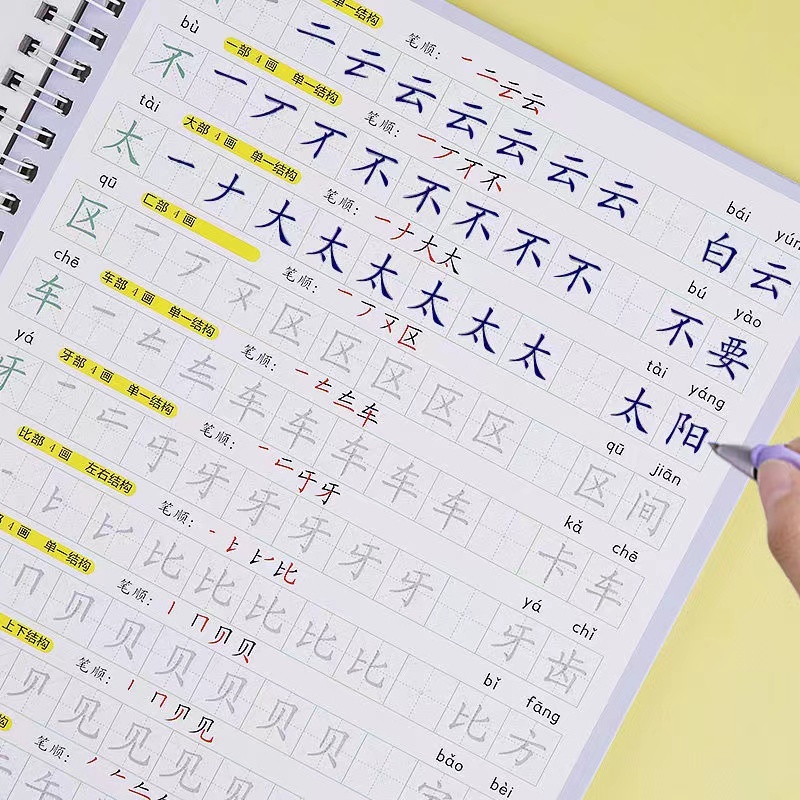 单一结构 笔顺: 一 二 云 云
二 云 云 云 云 云 云
bái yún
白 云
bù 一部 4 画 单一结构 笔顺: 一 丆 不 不
不 一 丆 不 不 不 不 不 不
bú yào
不 要
tài 大部 4 画 单一结构 笔顺: 一 ナ 大 太
太 一 ナ 大 太 太 太 太 太
tài yáng
太 阳
qū 匚部 4 画 笔顺: 一 丆 又 区
区 一 丆 区 区 区 区 区
qū jiān
区 间
chē 车部 4 画 单一结构 笔顺: 一 车
车 一 车 车 车 车 车
kǎ chē
卡 车
yá 牙部 4 画 单一结构 笔顺: 一 二 牙 牙
牙 一 二 牙 牙 牙 牙 牙 牙
yá chǐ
牙 齿
比部 4 画 左右结构 笔顺: 比
比 比 比 比 比
bǐ fāng
比 方
部 4 画 单一结构 笔顺: 丨 冂 贝 贝
冂 贝 贝 贝 贝 贝 贝
bǎo bèi
上下结构 笔顺: 丨 冂 贝 见
见 见 见 见
构 笔顺: